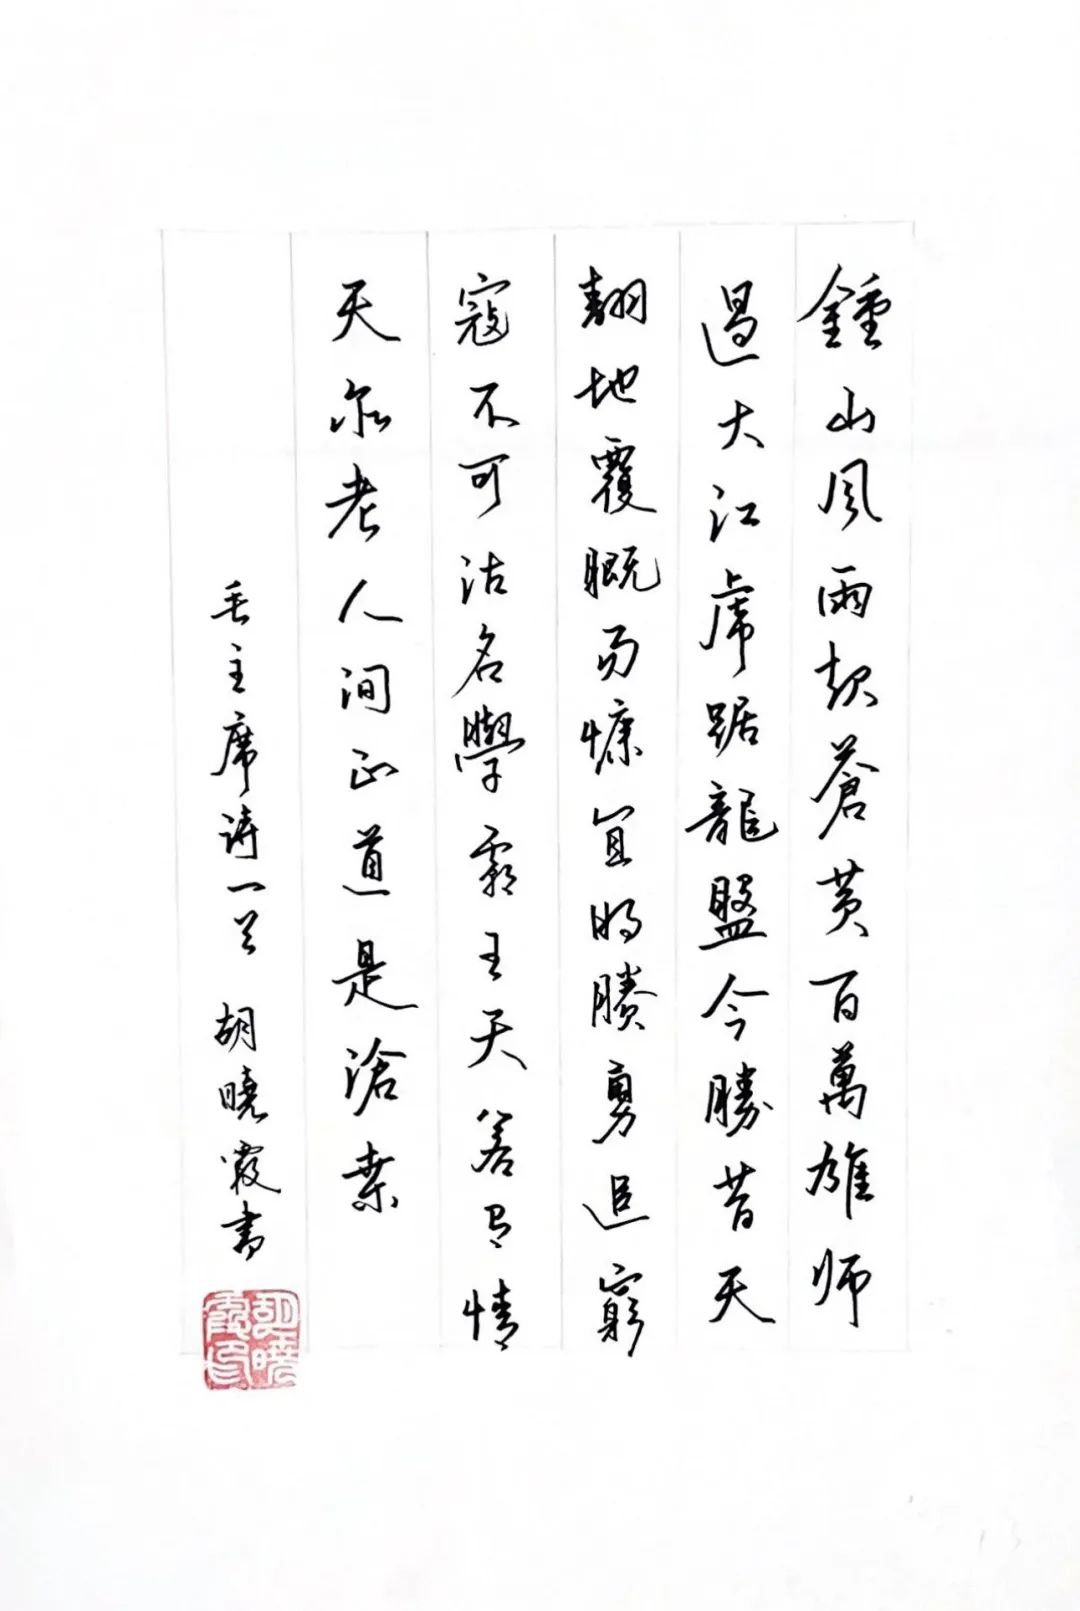 鍾山風雨起蒼黄百萬雄师
過大江虎踞龍盤今勝昔天
翻地覆慨而慷宜将賸勇追窮
寇不可沽名學霸王天若有情
天亦老人间正道是滄桑
毛主席诗一首 胡曉霞书
胡曉霞印